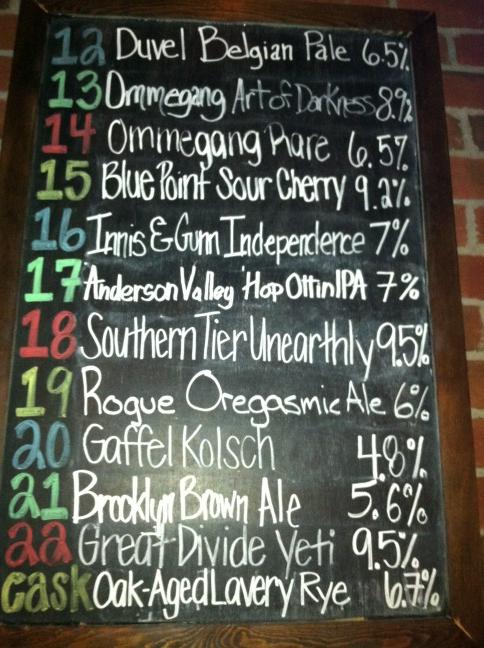 12 Duvel Belgian Pale 6.5%
13 Ommegang Art of Darkness 8.9%
14 Ommegang Rare 6.5%
15 Blue Point Sour Cherry 9.2%
16 Innis & Gunn Independence 7%
17 Anderson Valley 'Hop Ottin IPA 7%
18 Southern Tier Unearthly 9.5%
19 Rogue Oregasmic Ale 6%
20 Gaffel Kolsch 4.8%
21 Brooklyn Brown Ale 5.6%
22 Great Divide Yeti 9.5%
Cask Oak-Aged Lavery Rye 6.7%